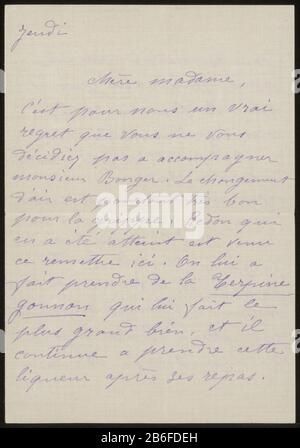 Jeudi
Chère madame,
c'est pour nous un vrai
regret que vous ne vous
décidiez pas a accompagner
monsieur Bonger. Le changement
d'air est pourtant très bon
pour la grippe. Redon qui
en a été atteint est venu
ce remettre ici. On lui a
fait prendre de la Terpine
gonnon qui lui fait le
plus grand bien, et il
continue a prendre cette
liqueur après ses repas.
alamy
Image ID: 2B6FDEH
www.alamy.com